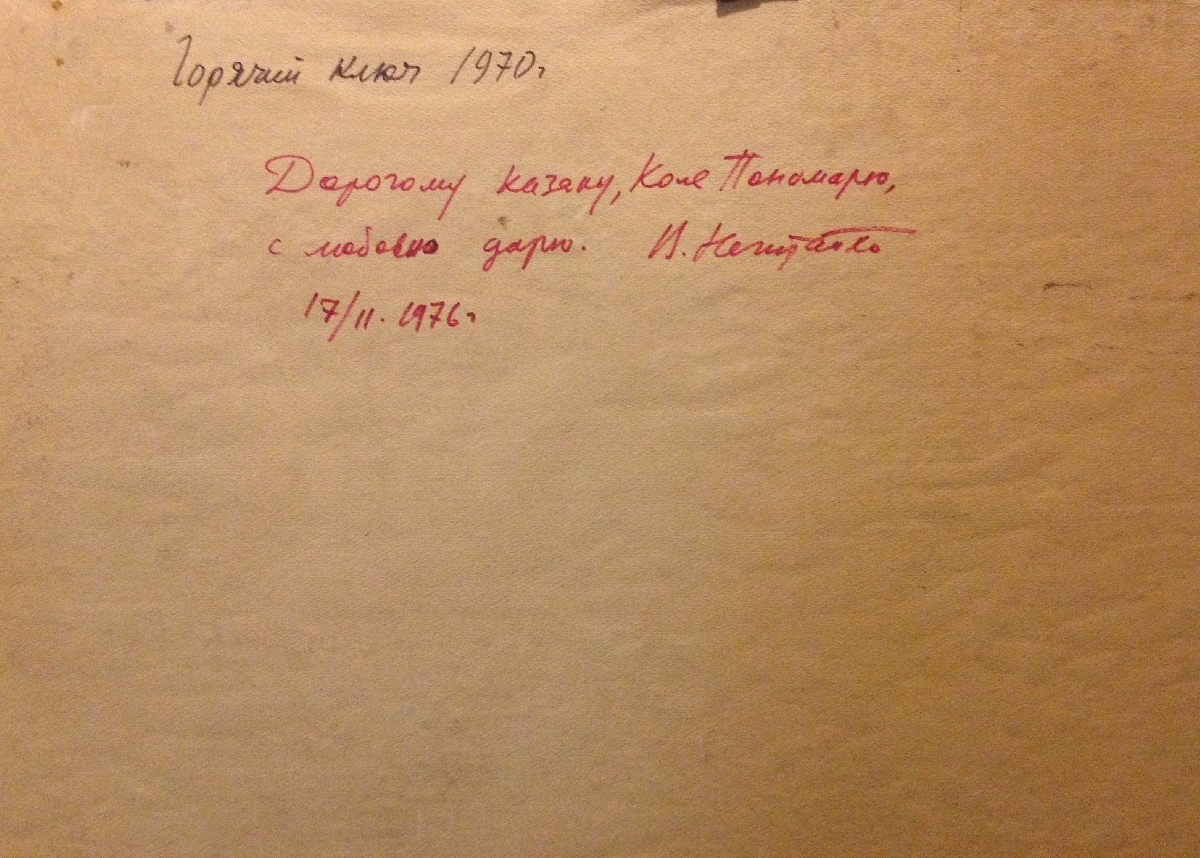 Горячий Ключ 1970г
Дорогому казаку, Коле Пономарю,
с любовью дарю. В. Нечитайло
17/II. 1976г